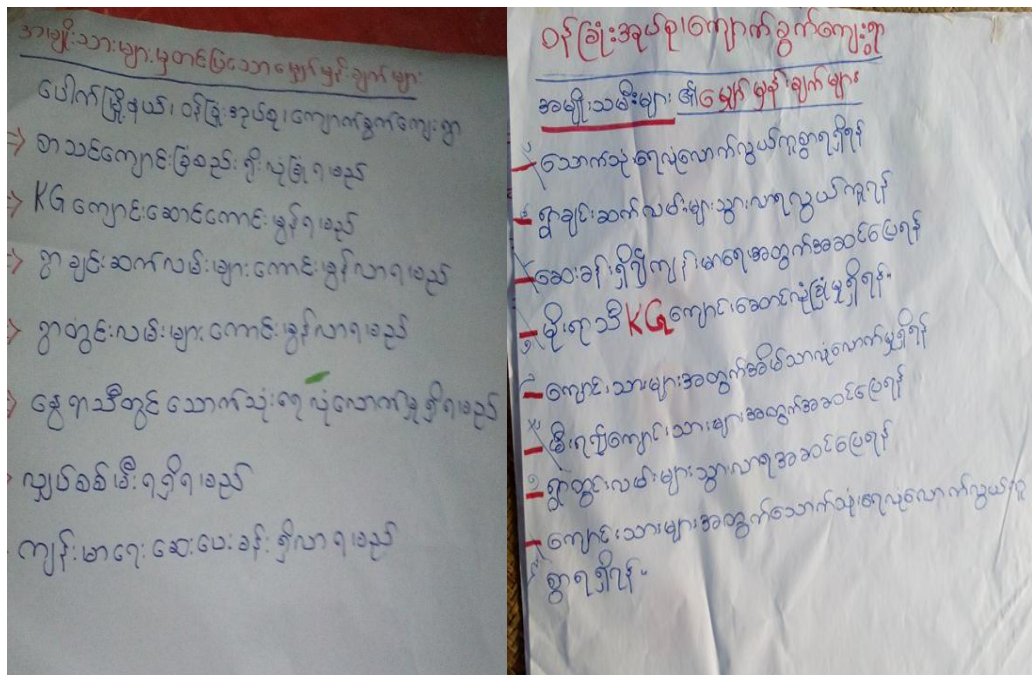 အမျိုးသားများမှတင်ပြသောမျှော်မှန်းချက်များ
ပေါက်မြို့နယ်၊ ဝန်ခြုံးအုပ်စု၊ကျောက်ခွက်ကျေးရွာ
⇒ စာသင်ကျောင်းခြံစည်းရိုးလုံခြုံရမည်
⇒ KG ကျောင်းဆောင်ကောင်းမွန်ရမည်
⇒ ရွာချင်းဆက်လမ်းများကောင်းမွန်လာရမည်
⇒ ရွာတွင်းလမ်းများကောင်းမွန်လာရမည်
⇒ နွေရာသီတွင် သောက်သုံးရေလုံလောက်မှုရှိရမည်
လျှပ်စစ်မီးရရှိရမည်
ကျန်းမာရေးဆေးပေးခန်းရှိလာရမည်
ဝန်ခြုံးအုပ်စု၊ကျောက်ခွက်ကျေးရွာ
အမျိုးသမီးများ၏မျှော်မှန်းချက်များ
သောက်သုံးရေလုံလောက်လွယ်ကူစွာရရှိရန်
ရွာချင်းဆက်လမ်းများသွားလာရလွယ်ကူရန်
ဆေးခန်းရှိ၍ကျန်းမာရေးအတွက်အဆင်ပြေရန်
မိုးရာသီ KG ကျောင်းဆောင်လုံခြုံမှုရှိရန်။
ကျောင်းသားများအတွက်အိမ်သာလုံလောက်မှုရှိရန်
မီးရ၍ကျောင်းသားများအတွက်အဆင်ပြေရန်
ရွာတွင်းလမ်းများသွားလာရအဆင်ပြေရန်
ကျောင်းသားများအတွက်သောက်သုံးရေလုံလောက်လွယ်ကူ
စွာရရှိရန်။